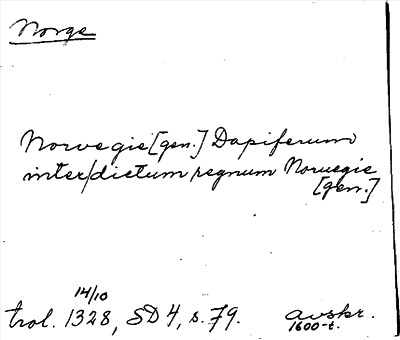 Norge
Norvegie [gen.] Dapiferum
inter/dictum regnum Noruegie
[gen.]
14/10
trol. 1328, SD 4, s. 79. avskr.
1600-t.